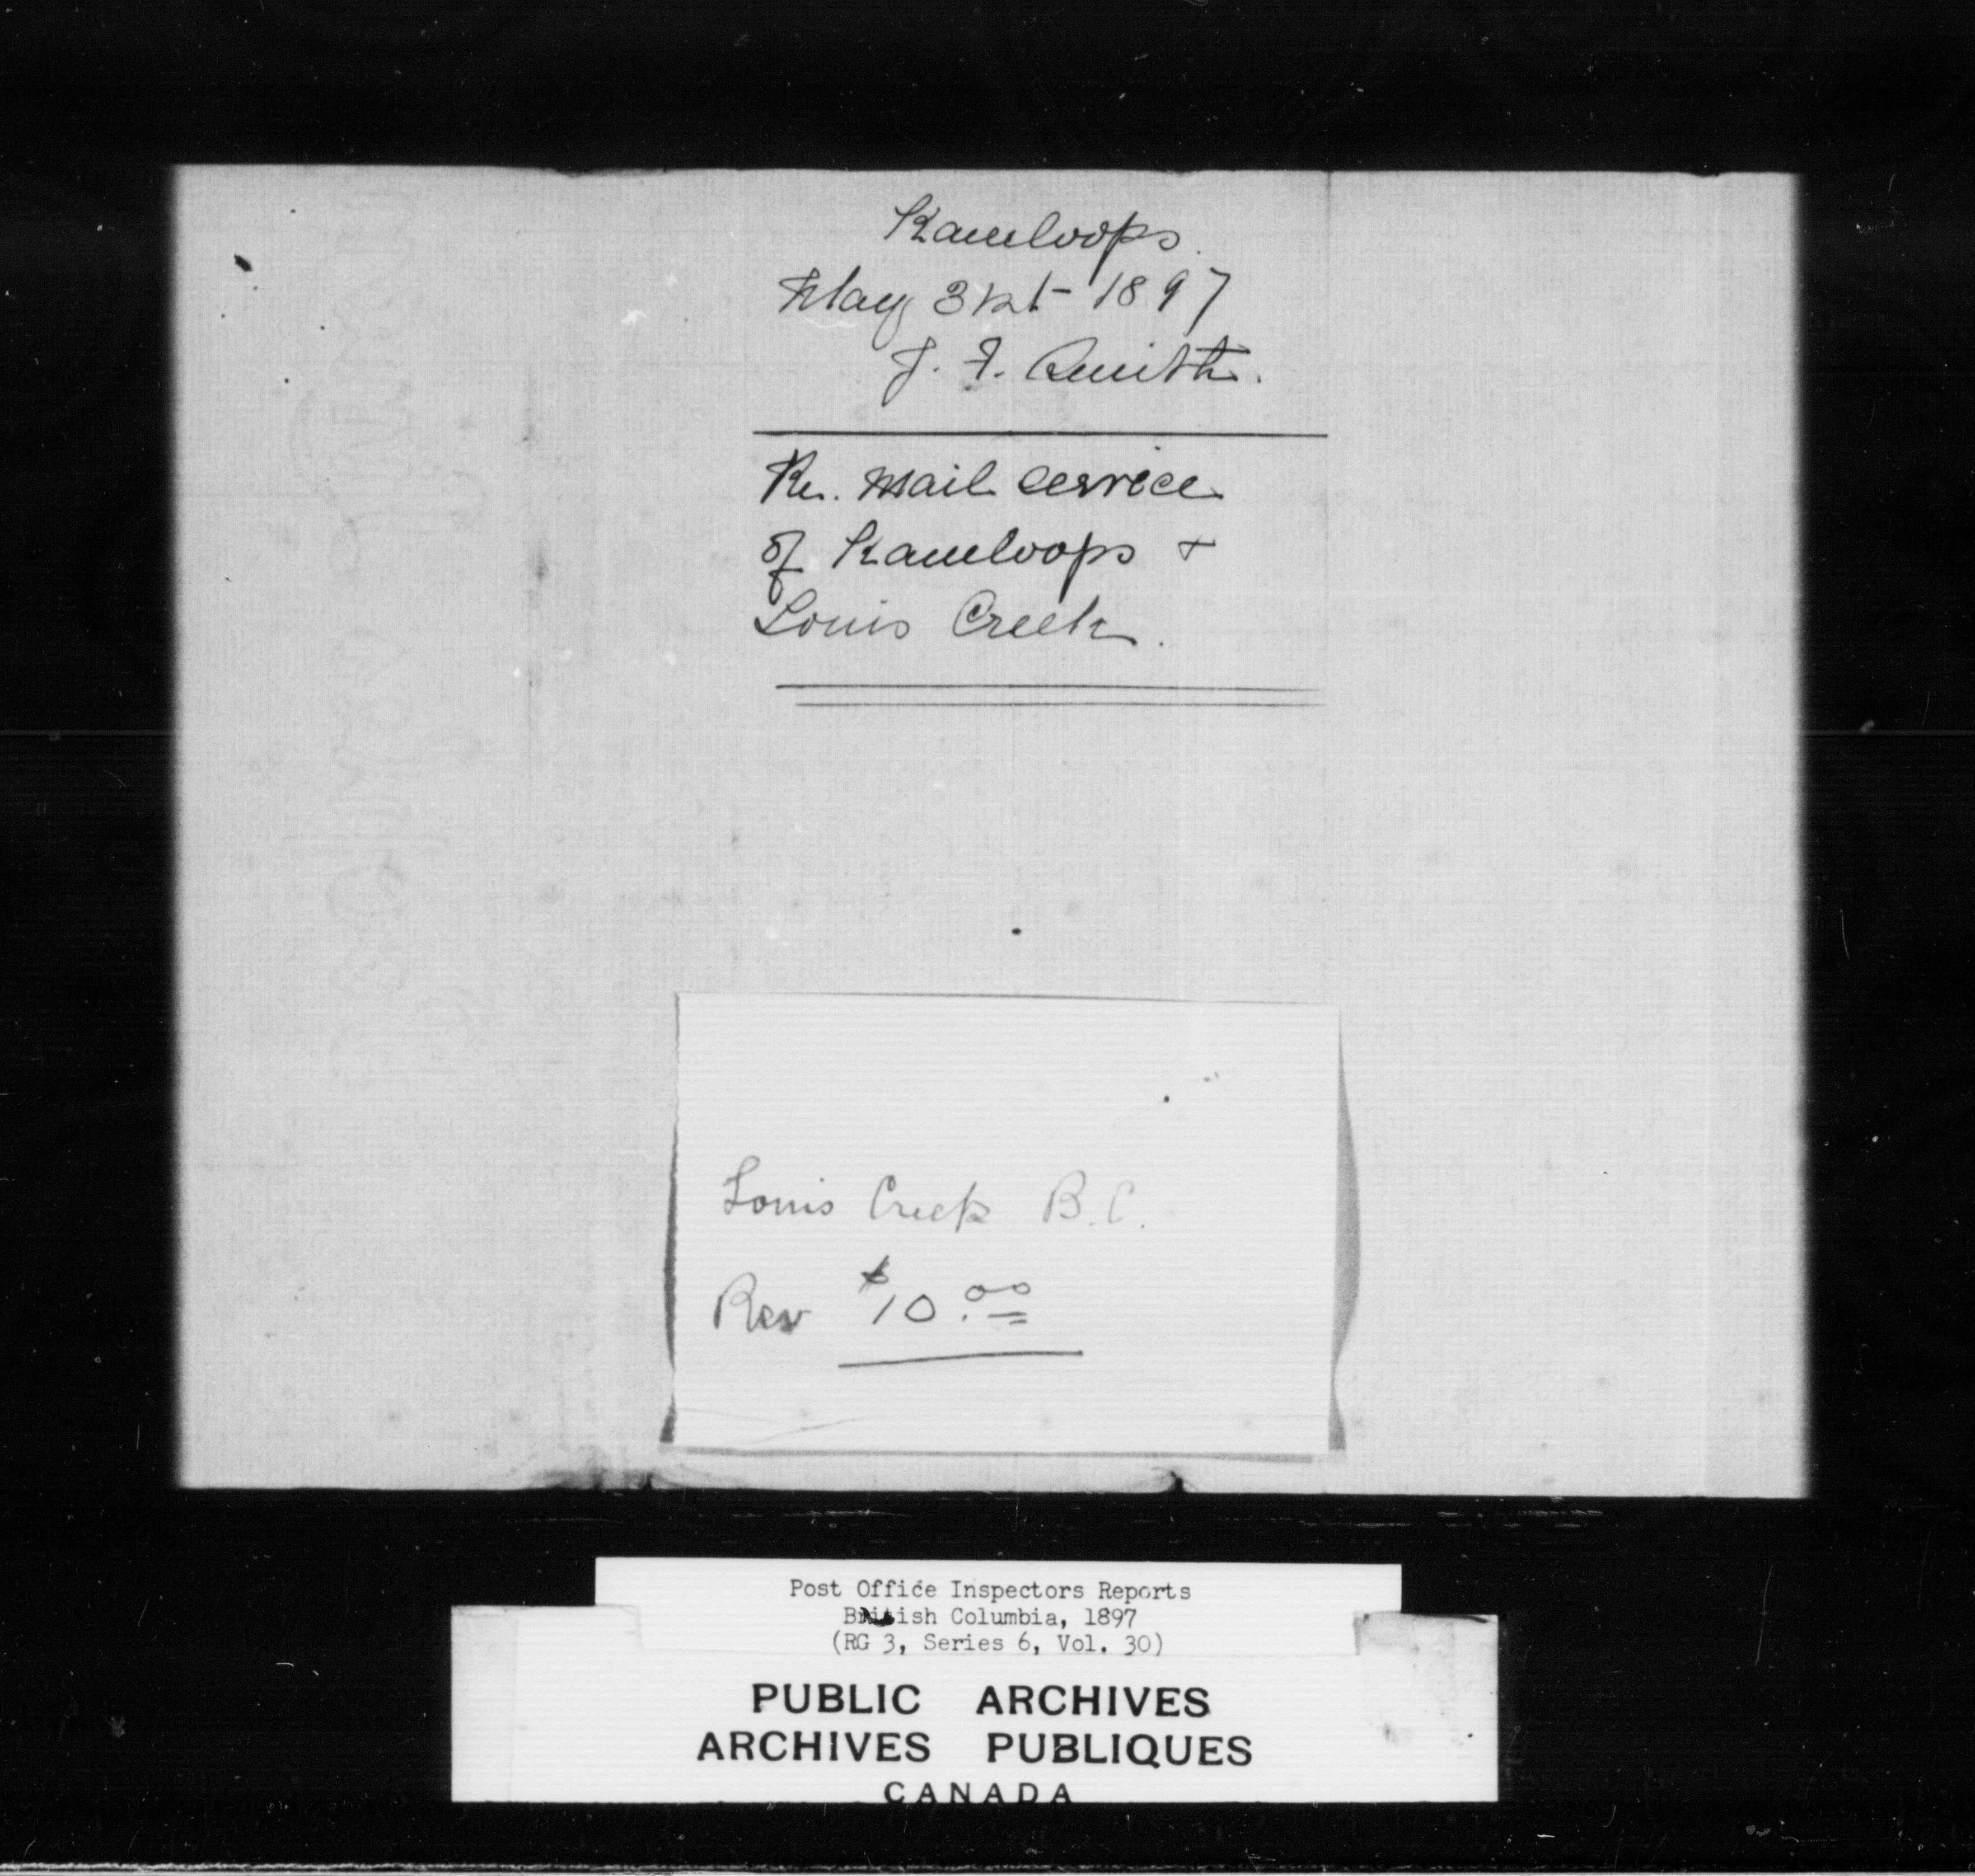 Kamloops.
May 31st 1897
J. F. Smith.
Re. Mail service
of Kamloops +
Louis Creek.
Louis Creek B.C.
Rev $10.00
Post Office Inspectors Reports
British Columbia, 1897
(RG 3, Series 6, Vol. 30)
PUBLIC ARCHIVES
ARCHIVES PUBLIQUES
CANADA